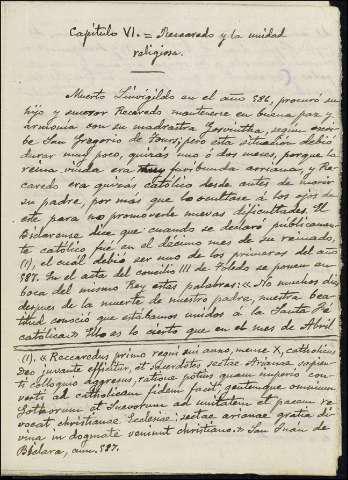 Capítulo VI. = Recaredo y la unidad
religiosa.
Muerto Leovigildo en el año 586, procuró su
hijo y sucesor Recaredo mantenerse en buena paz y
armonía con su madrastra Gosvintha, segun escri-
be San Gregorio de Tours; pero esta situación debió
durar muy poco, quizás uno ó dos meses, porque la
reina viuda era muy furibunda arriana, y Re-
caredo era quizás católico desde antes de morir
su padre, por más que lo ocultase á los ojos de
este para no promoverle nuevas dificultades. El
Biclarense dice que cuando se declaró públicamen-
te católico fué en el décimo mes de su reinado,
(1), el cuál debió ser uno de los primeros del año
587. En el acta del concilio III de Toledo se ponen en
boca del mismo Rey estas palabras: «No muchos dias
despues de la muerte de nuestro padre, nuestra bea-
titud conoció que estábamos unidos á la Santa Fé
católica.» Ello es lo cierto que en el mes de Abril
(1). «Reccaredus primo regni sui anno, mense X, catholicus
Deo juvante efficitur, et sacerdotes sectae Arianae sapien-
ti colloquio aggresus, ratione potius quam imperio con-
verti ad catholicam fidem facit, gentemque omnium
Gothorum et Suevorum ad unitatem et pacem re-
vocat christianae Ecclesiae: sectae arianae gratia di-
vina in dogmate veniunt christiano.» San Juan de
Biclara, ann. 587.